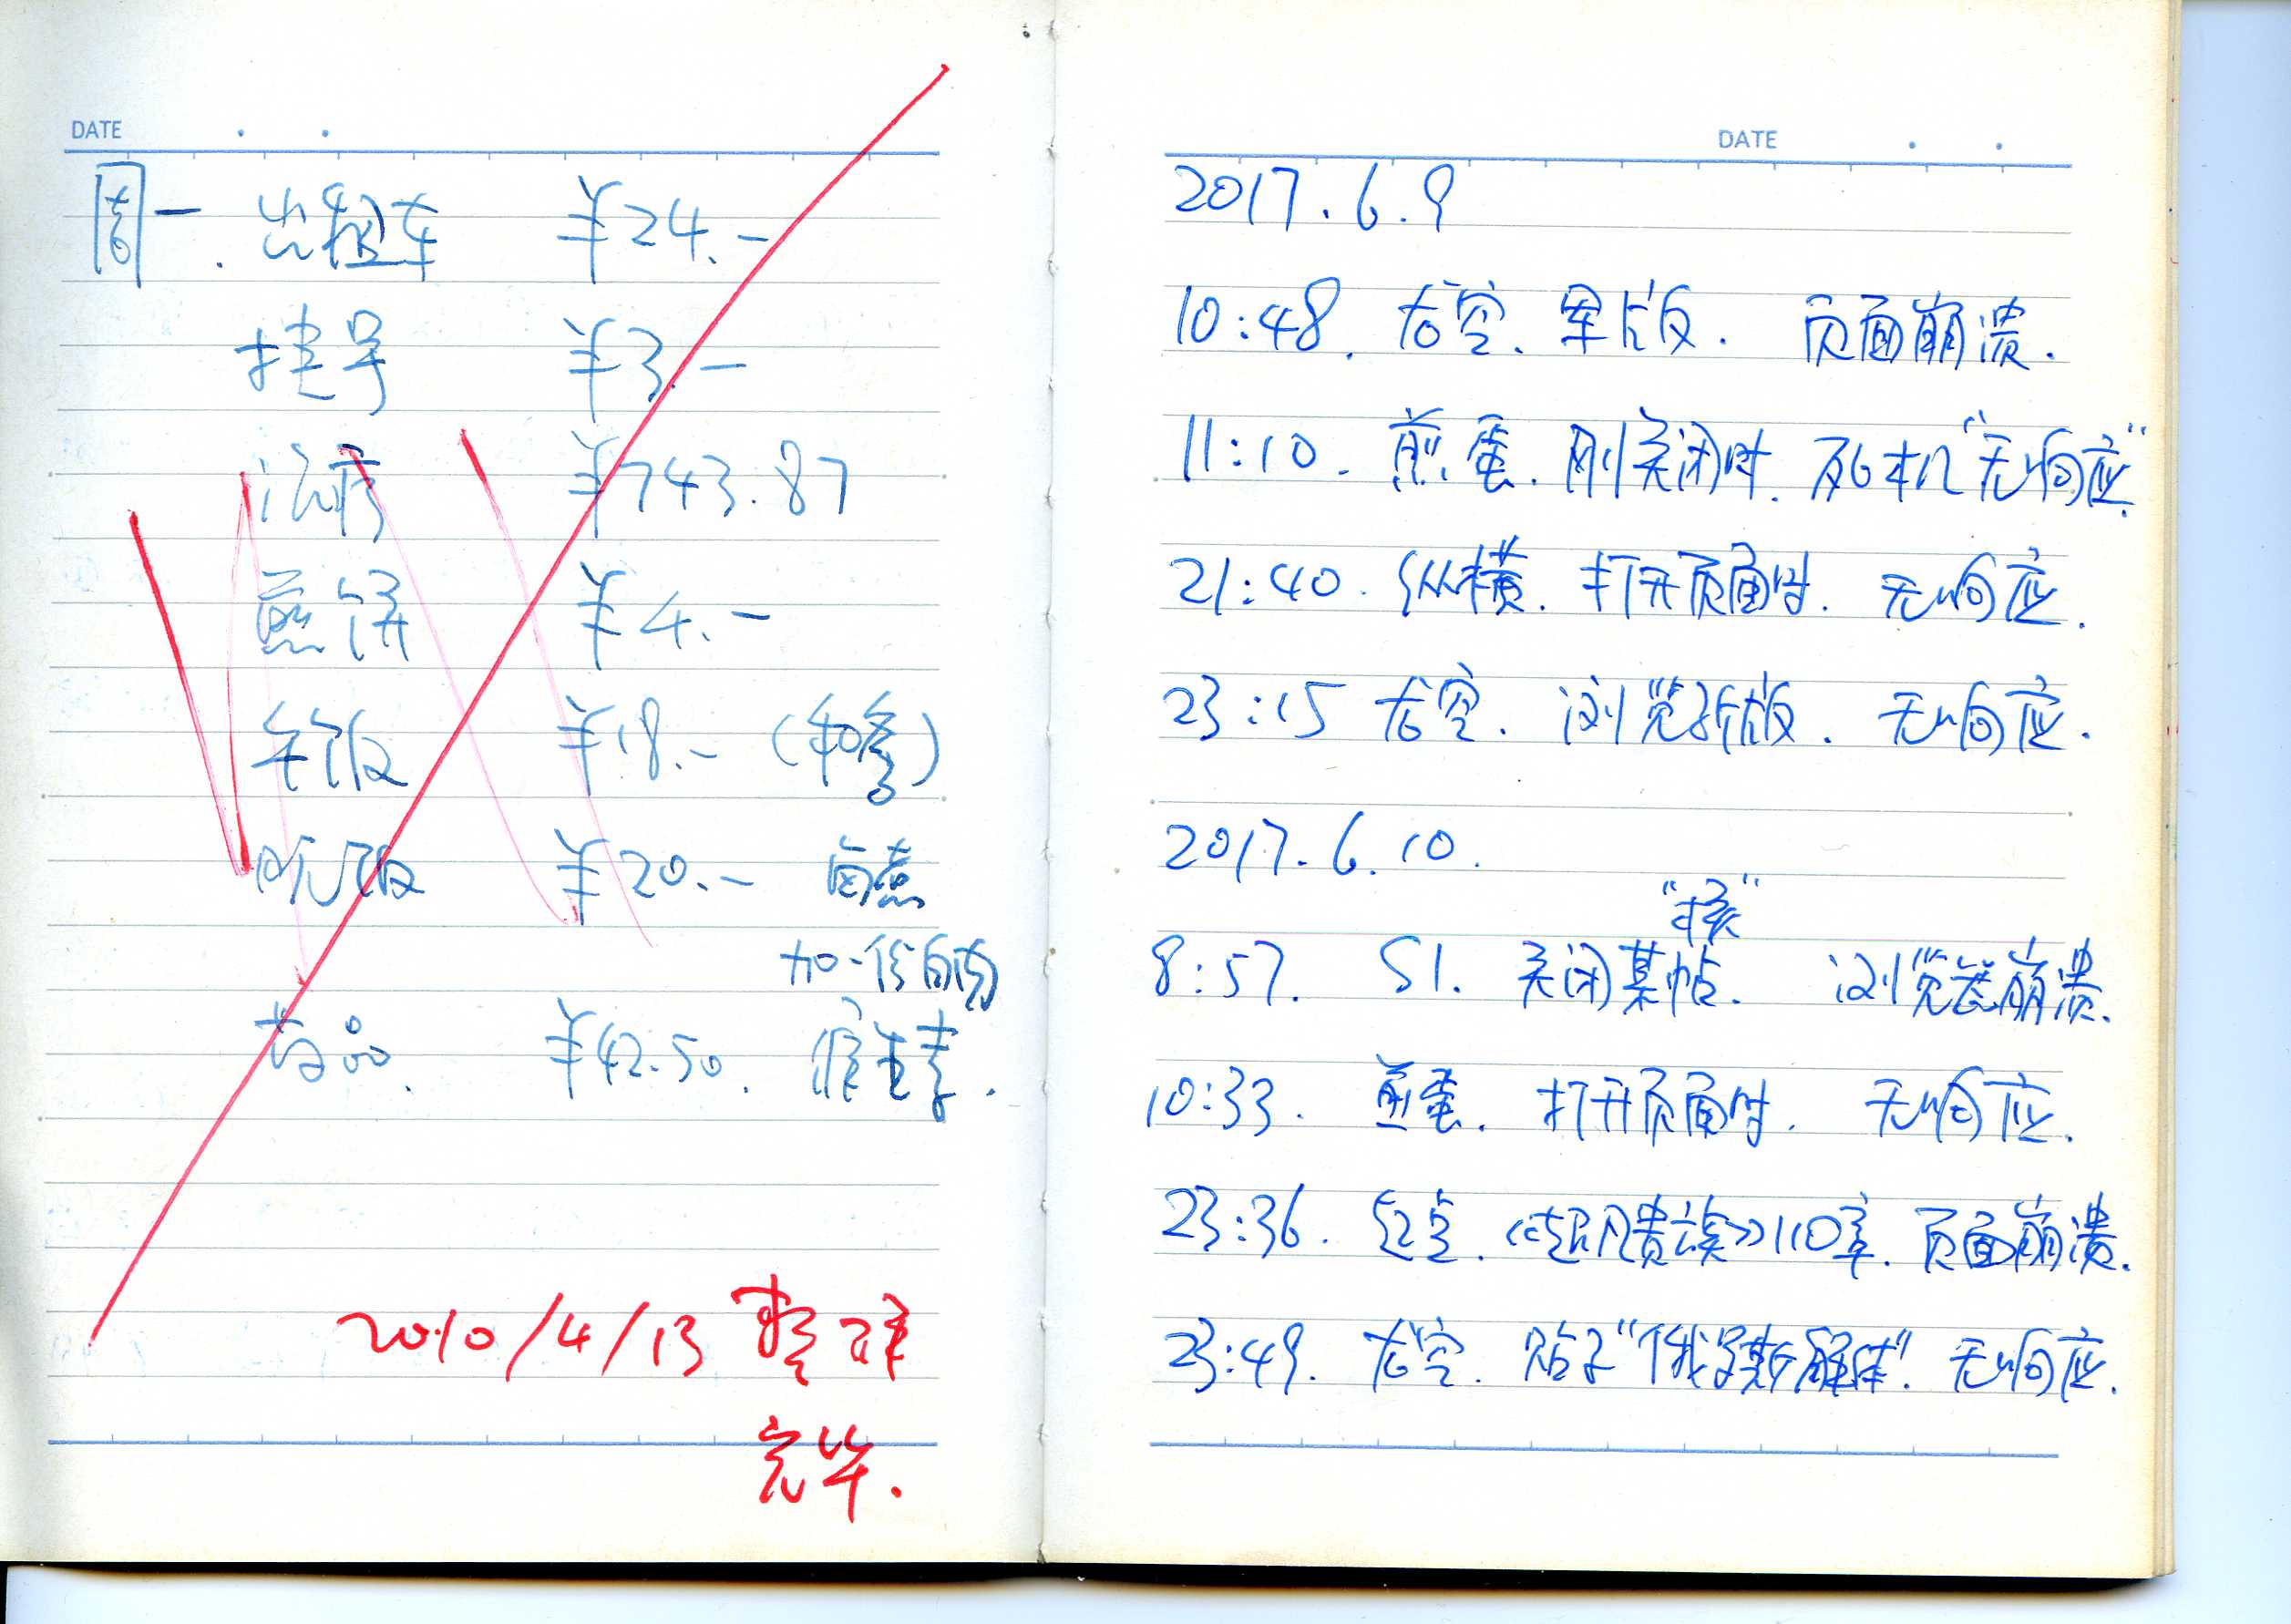 DATE
周一. 出租车 ¥24.-
挂号 ¥3.-
治疗 ¥743.87
煎饼 ¥4.-
午饭 ¥18.- (和合)
晚饭 ¥20.-
加一份
药品. ¥42.50. 维生素.
2010/4/13 整理
完毕.
DATE
2017.6.9
10:48. 龙空. 军版. 页面崩溃.
11:10. 煎蛋. 刚关闭时. 死机"无响应".
21:40. 纵横. 打开页面时. 无响应.
23:15 龙空. 浏览新版. 无响应.
2017.6.10.
"核"
8:57. S1. 关闭某帖. 浏览器崩溃.
10:33. 煎蛋. 打开页面时. 无响应.
23:36. 起点. 《超凡贵族》110章. 页面崩溃.
23:49. 龙空. 贴子"俄罗斯解体". 无响应.